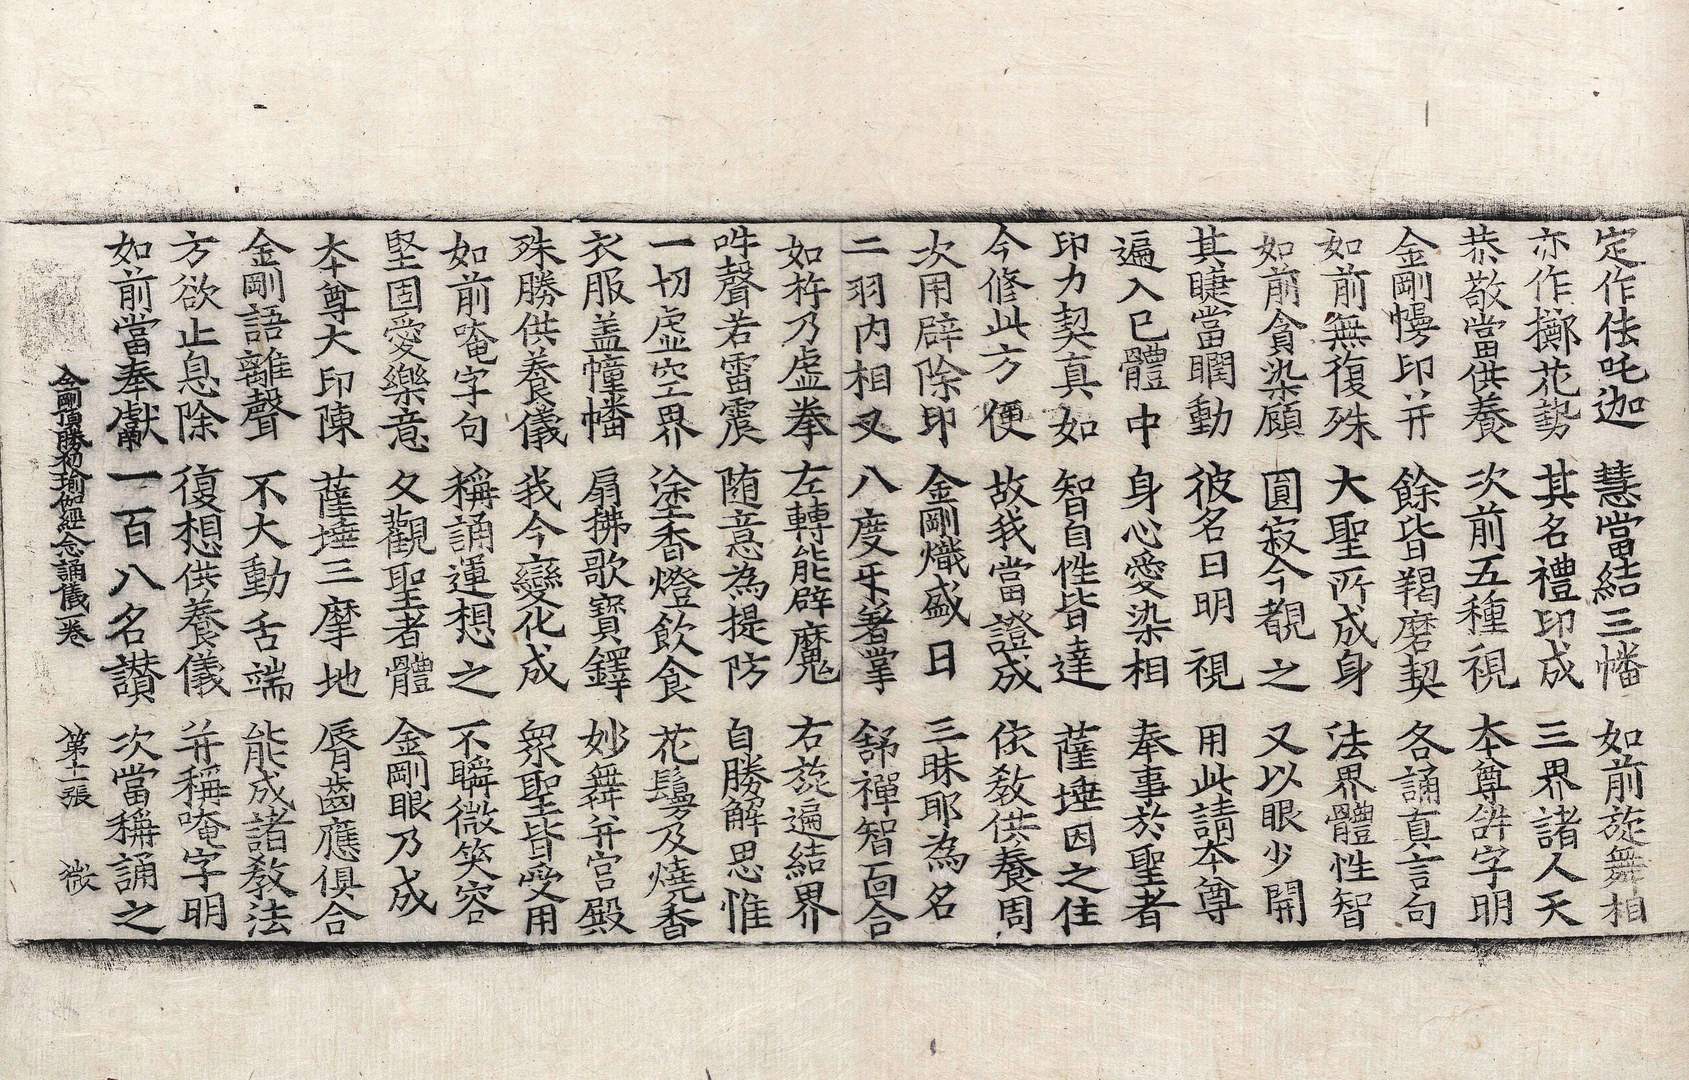 定作佉吒迦 慧當結三幡 如前旋舞相
亦作擲花勢 其名禮印成 三界諸人天
恭敬當供養 次前五種視 本尊𤙖字明
金剛慢印并 餘皆羯磨契 各誦真言句
如前無復殊 大聖所成身 法界體性智
如前貪染顧 圓寂今覩之 又以眼少開
其睫當瞤動 彼名曰明視 用此請本尊
遍入已體中 身心愛染相 奉事於聖者
印力契真如 智自性皆達 薩埵因之住
今修此方便 故我當證成 依教供養周
次用辟除印 金剛熾盛日 三昧耶為名
二羽內相叉 八度牙著掌 舒禪智面合
如杵乃虛拳 左轉能辟魔 右旋遍結界
吽聲若雷震 随意為提防 自勝解思惟
一切虛空界 塗香燈飲食 花鬘及燒香
衣服盖幢幡 扇拂歌寶鐸 妙舞并宮殿
殊勝供養儀 我今變化成 眾聖皆受用
如前唵字句 稱誦運想之 不瞬微笑容
堅固愛樂意 久觀聖者體 金剛眼乃成
本尊大印陳 薩埵三摩地 脣齒應俱合
金剛語離聲 不大動舌端 能成諸教法
方欲止息除 復想供養儀 并稱唵字明
如前當奉獻 一百八名讚 次當稱誦之
金剛頂勝初瑜伽經念誦儀一卷 第十一張 㣲